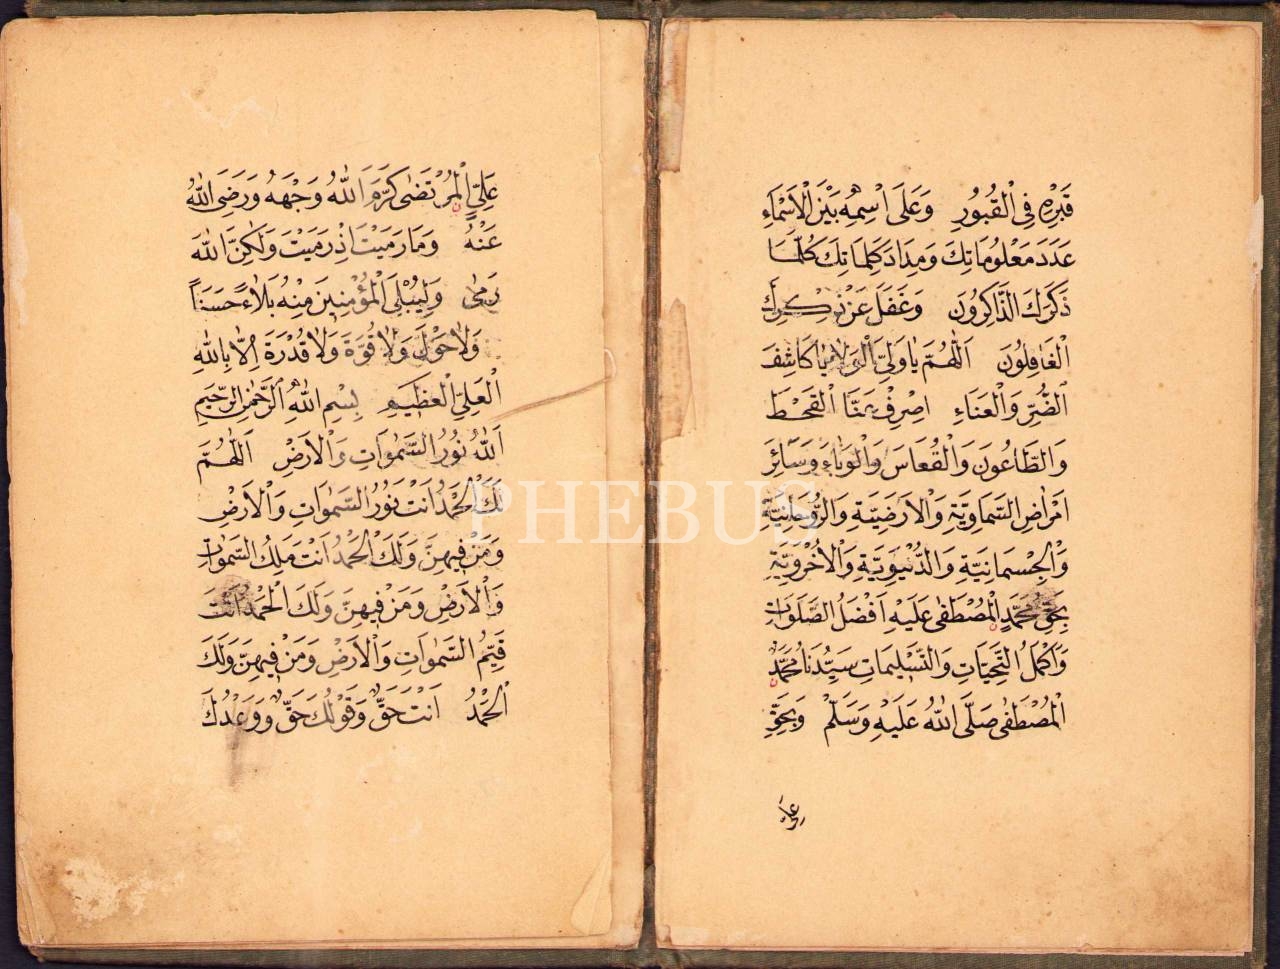 قَبْرِهِ فِي الْقُبُورِ وَعَلَى اسْمِهِ بَيْنَ الْاَسْمَاءِ
عَدَدَ مَعْلُومَاتِكَ وَمِدَادَ كَلِمَاتِكَ كُلَّمَا
ذَكَرَكَ الذَّاكِرُونَ وَغَفَلَ عَنْ ذِكْرِكَ
الْغَافِلُونَ اَللّٰهُمَّ يَا وَلِيَّ الْوَلَاءِ يَا كَاشِفَ
الضُّرِّ وَالْعَنَاءِ اِصْرِفْ عَنَّا الْقَحْطَ
وَالطَّاعُونَ وَالْقُعَاسَ وَالْوَبَاءَ وَسَائِرَ
اَمْرَاضِ السَّمَاوِيَّةِ وَالْاَرْضِيَّةِ وَالرُّوحَانِيَّةِ
وَالْجِسْمَانِيَّةِ وَالدُّنْيَوِيَّةِ وَالْاُخْرَوِيَّةِ
بِحَقِّ مُحَمَّدٍ الْمُصْطَفٰى عَلَيْهِ اَفْضَلُ الصَّلَوَاتِ
وَاَكْمَلُ التَّحِيَّاتِ وَالتَّسْلِيمَاتِ سَيِّدِنَا مُحَمَّدٍ
الْمُصْطَفٰى صَلَّى اللّٰهُ عَلَيْهِ وَسَلَّمْ وَبِحَقِّ
عَلِيٍّ
عَلِيٍّ الْمُرْتَضٰى كَرَّمَ اللّٰهُ وَجْهَهُ وَرَضِيَ اللّٰهُ
عَنْهُ وَمَا رَمَيْتَ اِذْ رَمَيْتَ وَلٰكِنَّ اللّٰهَ
رَمٰى وَلِيُبْلِيَ الْمُؤْمِنِينَ مِنْهُ بَلَاءً حَسَنًا
وَلَا حَوْلَ وَلَا قُوَّةَ وَلَا قُدْرَةَ اِلَّا بِاللّٰهِ
الْعَلِيِّ الْعَظِيمِ بِسْمِ اللّٰهِ الرَّحْمٰنِ الرَّحِيمِ
اَللّٰهُ نُورُ السَّمٰوَاتِ وَالْاَرْضِ اَللّٰهُمَّ
لَكَ الْحَمْدُ اَنْتَ نُورُ السَّمٰوَاتِ وَالْاَرْضِ
وَمَنْ فِيهِنَّ وَلَكَ الْحَمْدُ اَنْتَ مَلِكُ السَّمٰوَاتِ
وَالْاَرْضِ وَمَنْ فِيهِنَّ وَلَكَ الْحَمْدُ اَنْتَ
قَيِّمُ السَّمٰوَاتِ وَالْاَرْضِ وَمَنْ فِيهِنَّ وَلَكَ
الْحَمْدُ اَنْتَ حَقٌّ وَقَوْلُكَ حَقٌّ وَوَعْدُكَ
PHEBUS